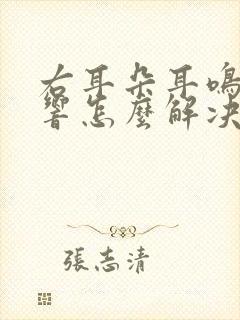 右耳朵耳鳴
響怎麼解决
張志清